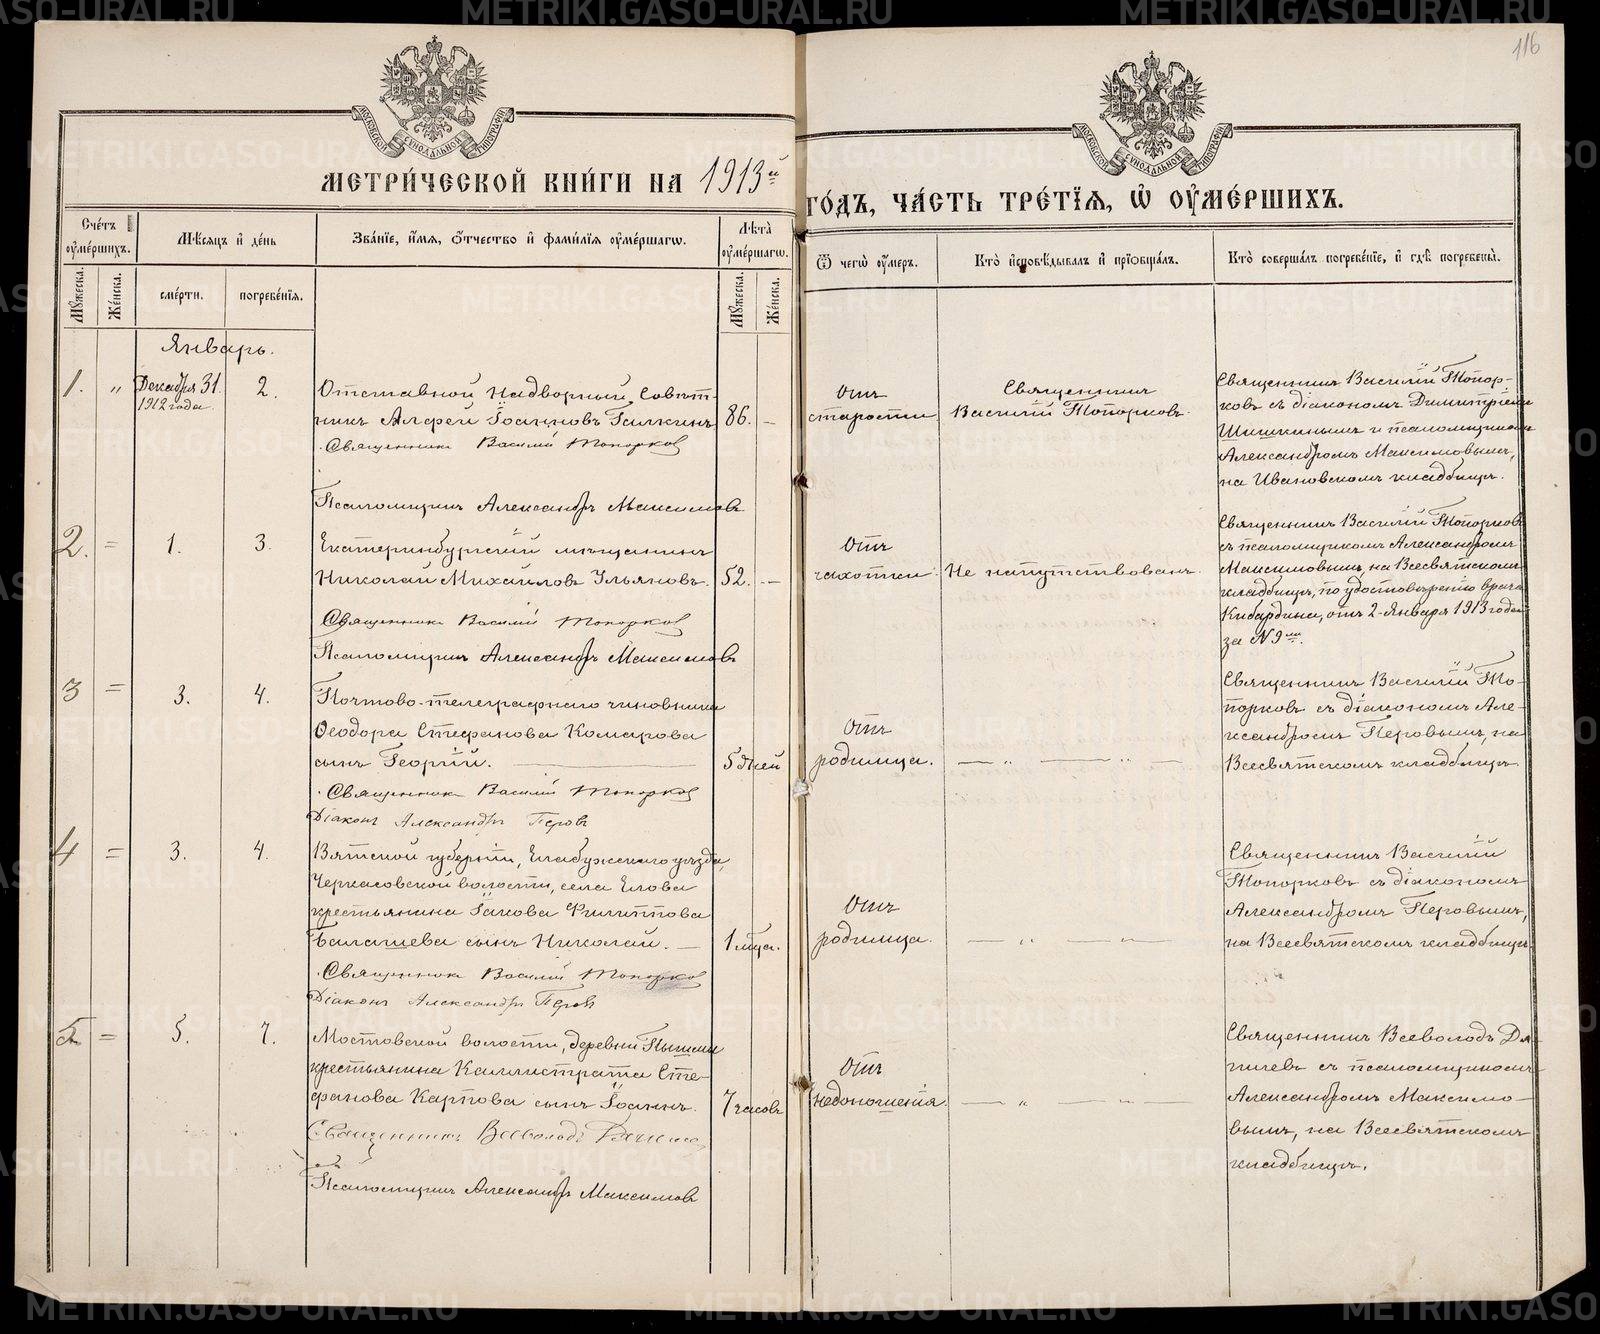 116
МОСКОВСКОЙ СѴНОДАЛЬНОЙ ТИПОГРАФІИ
МОСКОВСКОЙ СѴНОДАЛЬНОЙ ТИПОГРАФІИ
МЕТРИ́ЧЕСКОЙ КНИ́ГИ НА 1913й
ГО́ДЪ, ЧА́СТЬ ТРЕ́ТІѦ, Ѡ҆ ОУ҆МЕ́РШИХЪ.
Сче́тъ оу҆ме́ршихъ.
Мꙋ́жеска. Же́нска.
Мѣ́сяцъ и҆ де́нь
сме́рти. погребе́нїѧ.
Зва́нїе, и҆́мѧ, ѻ҆́тчество и҆ фами́лїѧ оу҆ме́ршагѡ.
Лѣ̑та оу҆ме́ршагѡ.
Мꙋ́жеска. Же́нска.
Ѿ чегѡ̀ оу҆́меръ.
Кто̀ и҆сповѣ́дывалъ и҆ прїѡбща́лъ.
Кто̀ соверша́лъ погребе́нїе, и҆ гдѣ̀ погребены̀.
Январь.
1. " Декабря 31. 2.
1912 года.
Отставной Надворный Совѣт-
никъ Алфей Іоанновъ Галкинъ 86. –
Священникъ Василій Топорковъ
Псаломщикъ Александръ Максимовъ
отъ
старости
Священникъ
Василій Топорковъ.
Священникъ Василій Топор-
ковъ съ діакономъ Димитріемъ
Шишкинымъ и псаломщикомъ
Александромъ Максимовымъ,
на Ивановскомъ кладбищѣ.
2. = 1. 3.
Екатеринбургскій мѣщанинъ
Николай Михайловъ Ульяновъ. 52. –
Священникъ Василій Топорковъ
Псаломщикъ Александръ Максимовъ
Отъ
чахотки.
Не напутствованъ.
Священникъ Василій Топорковъ
съ псаломщикомъ Александромъ
Максимовымъ, на Всесвятскомъ
кладбищѣ, по удостовѣренію врача
Кибардина, отъ 2 Января 1913 года
за № 9мъ.
3 = 3. 4.
Почтово-телеграфнаго чиновника
Ѳеодора Стефанова Комарова
сынъ Георгій. 5 дней
Священникъ Василій Топорковъ
Діаконъ Александръ Перовъ
Отъ
родимца.
— " — " —
Священникъ Василій То-
порковъ съ діакономъ Але-
ксандромъ Перовымъ, на
Всесвятскомъ кладбищѣ.
4 = 3. 4.
Вятской губерніи, Елабужскаго уѣзда,
Черкасовской волости, села Елова
крестьянина Іакова Филиппова
Балашева сынъ Николай. — 1 мѣсца.
Священникъ Василій Топорковъ
Діаконъ Александръ Перовъ
Отъ
родимца.
— " — " —
Священникъ Василій
Топорковъ съ діакономъ
Александромъ Перовымъ,
на Всесвятскомъ кладбищѣ.
5 = 5. 7.
Мостовской волости, деревни Пышмы
крестьянина Каллистрата Сте-
фанова Карпова сынъ Іоаннъ. 7 часовъ
Священникъ Всеволодъ
Псаломщикъ Александръ Максимовъ
Отъ
недоношенія.
— " — " —
Священникъ Всеволодъ
съ псаломщикомъ
Александромъ Максимо-
вымъ, на Всесвятскомъ
кладбищѣ.
METRIKI.GASO-URAL.RU